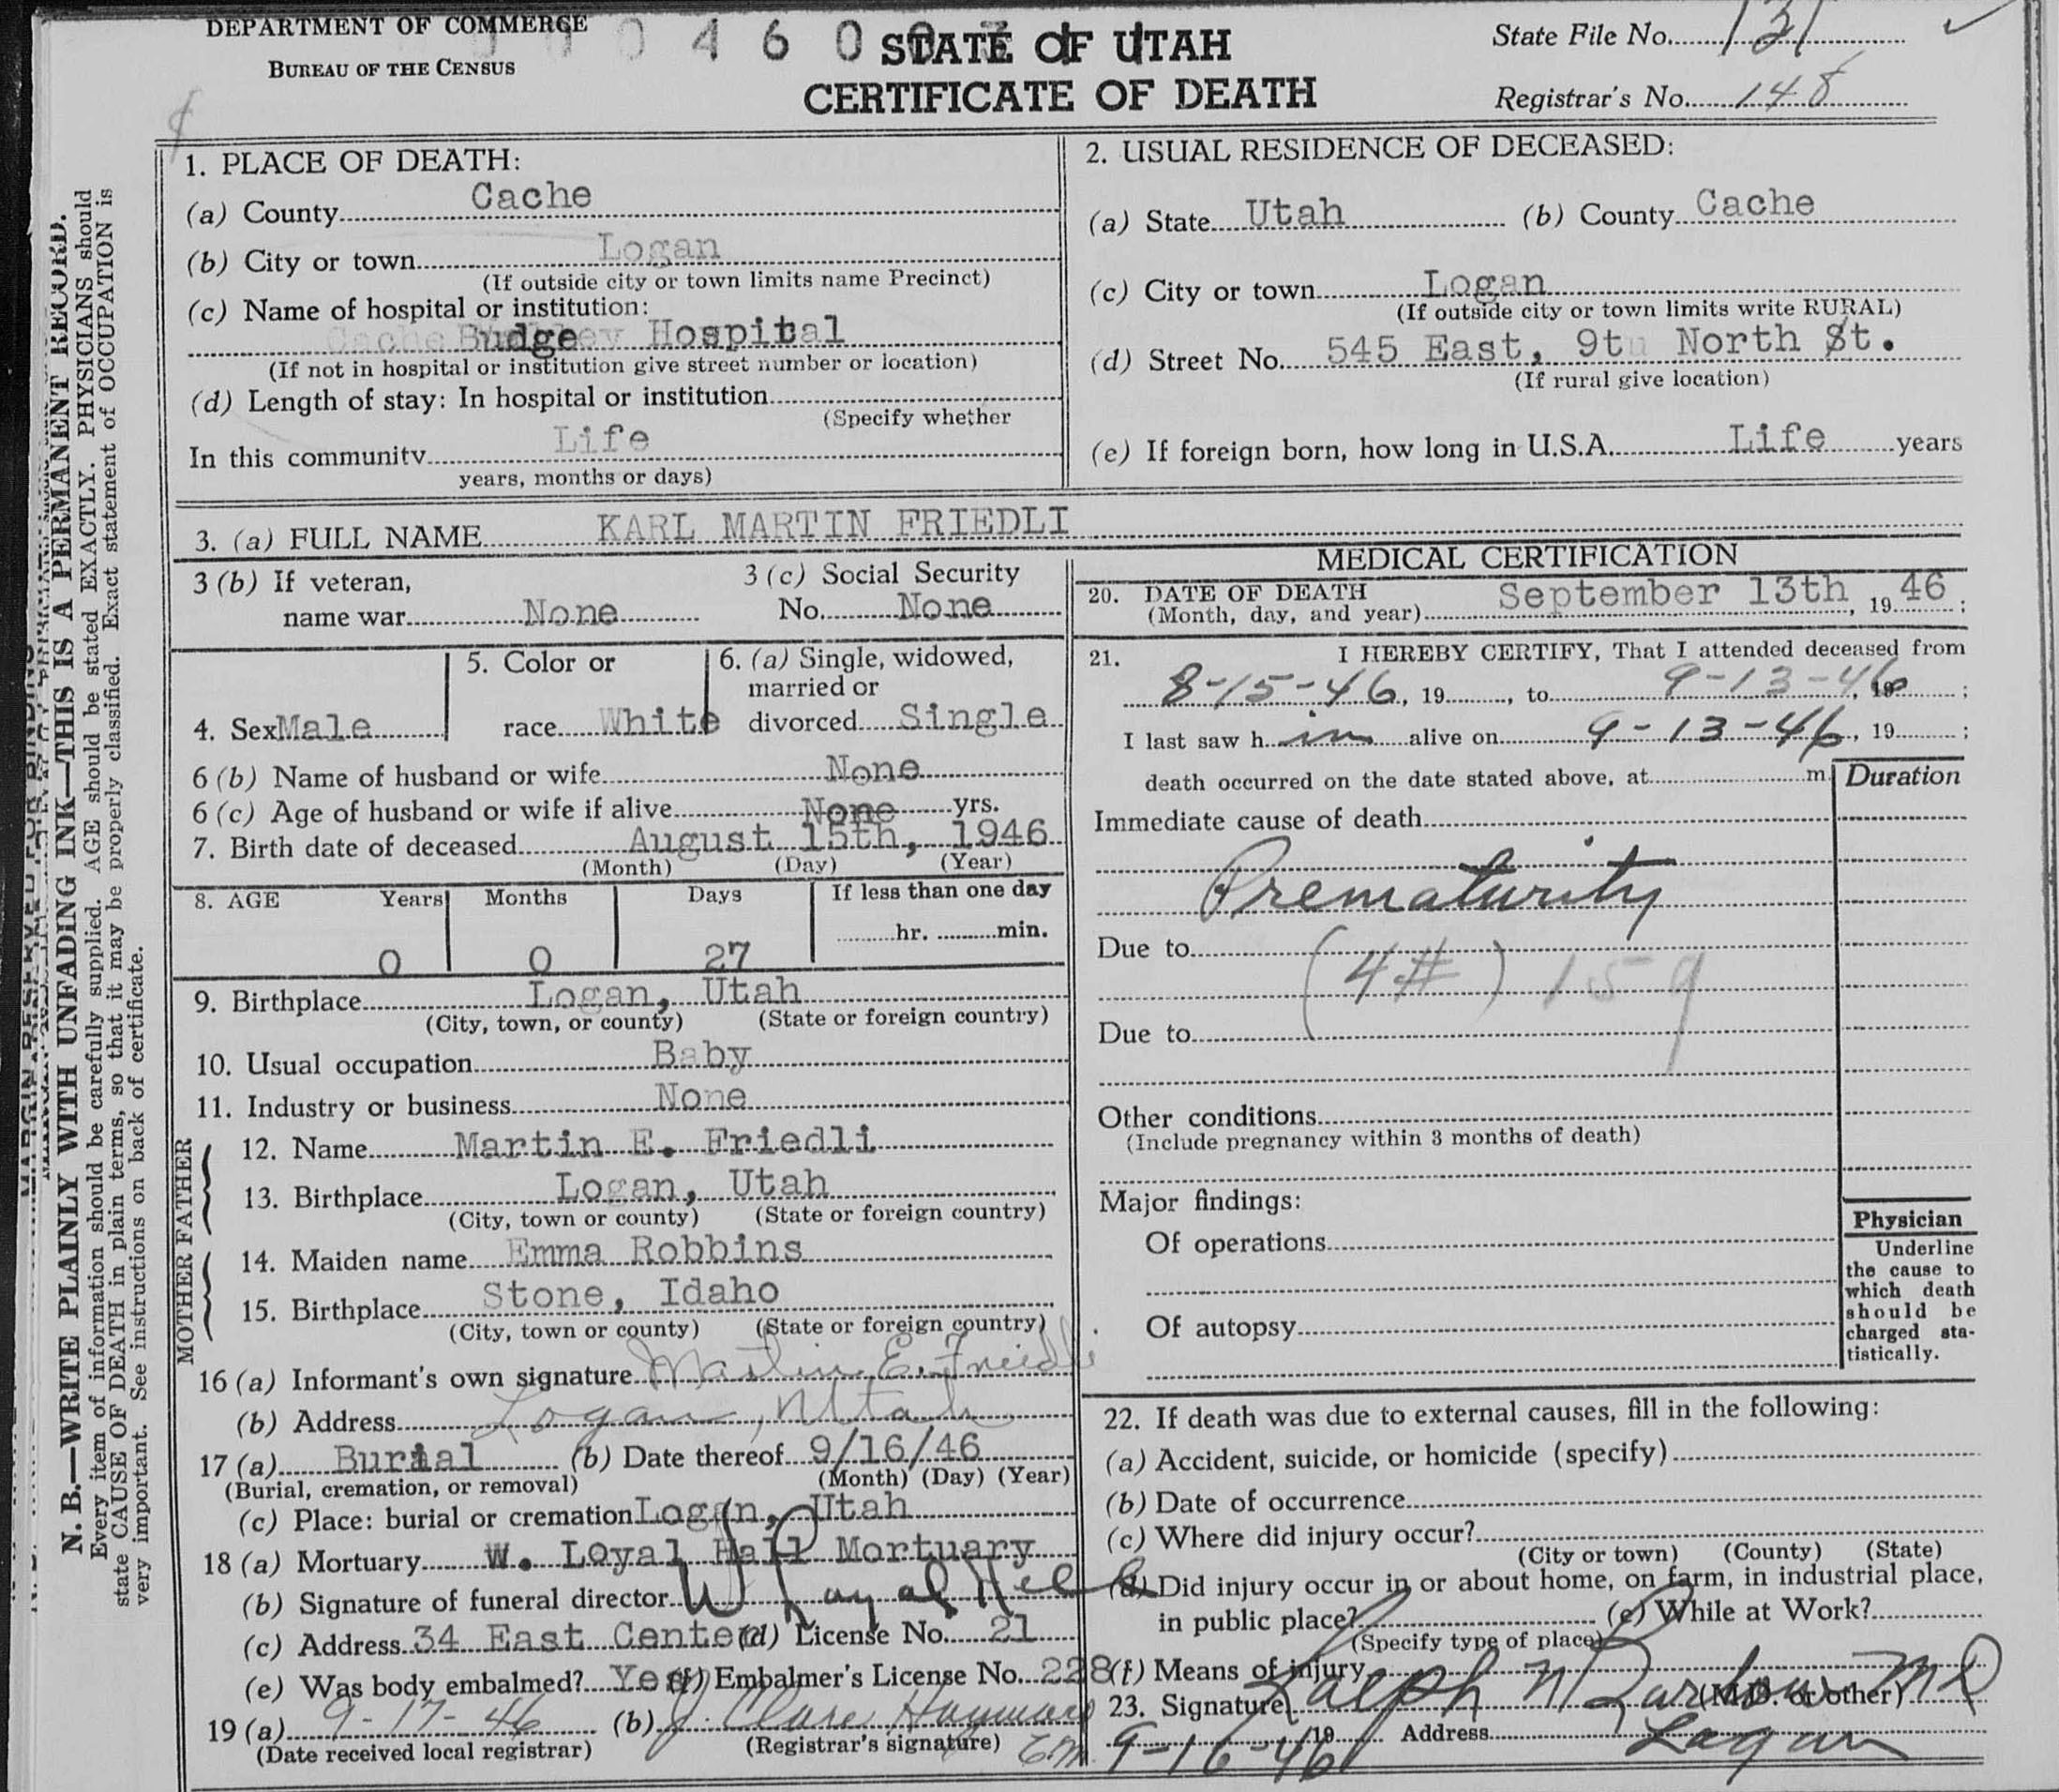 DEPARTMENT OF COMMERCE
BUREAU OF THE CENSUS
4 6 0
STATE OF UTAH
CERTIFICATE OF DEATH
State File No. 131
Registrar's No. 148
1. PLACE OF DEATH:
(a) County Cache
(b) City or town Logan
(If outside city or town limits name Precinct)
(c) Name of hospital or institution:
Budge Hospital
(If not in hospital or institution give street number or location)
(d) Length of stay: In hospital or institution
(Specify whether
In this community Life
years, months or days)
2. USUAL RESIDENCE OF DECEASED:
(a) State Utah (b) County Cache
(c) City or town Logan
(If outside city or town limits write RURAL)
(d) Street No. 545 East, 9th North St.
(If rural give location)
(e) If foreign born, how long in U.S.A. Life years
3. (a) FULL NAME KARL MARTIN FRIEDLI
3 (b) If veteran,
name war None
3 (c) Social Security
No. None
4. Sex Male
5. Color or
race White
6. (a) Single, widowed,
married or
divorced Single
6 (b) Name of husband or wife None
6 (c) Age of husband or wife if alive None yrs.
7. Birth date of deceased August 15th, 1946
(Month) (Day) (Year)
8. AGE Years Months Days If less than one day
hr. min.
0 0 27
9. Birthplace Logan, Utah
(City, town, or county) (State or foreign country)
10. Usual occupation Baby
11. Industry or business None
FATHER
12. Name Martin E. Friedli
13. Birthplace Logan, Utah
(City, town or county) (State or foreign country)
MOTHER
14. Maiden name Emma Robbins
15. Birthplace Stone, Idaho
(City, town or county) (State or foreign country)
16 (a) Informant's own signature Martin E. Friedli
(b) Address Logan, Utah
17 (a) Burial (b) Date thereof 9/16/46
(Burial, cremation, or removal) (Month) (Day) (Year)
(c) Place: burial or cremation Logan, Utah
18 (a) Mortuary W. Loyal Hall Mortuary
(b) Signature of funeral director W Loyal Hall
(c) Address 34 East Center (d) License No. 21
(e) Was body embalmed? Yes (f) Embalmer's License No. 228
19 (a) 9-17-46 (b) J. Clare Hayward
(Date received local registrar) (Registrar's signature)
MEDICAL CERTIFICATION
20. DATE OF DEATH
(Month, day, and year) September 13th, 1946;
21. I HEREBY CERTIFY, That I attended deceased from
8-15-46, 19, to 9-13-46, 19;
I last saw h im alive on 9-13-46, 19;
death occurred on the date stated above, at m.
Duration
Immediate cause of death
Prematurity
Due to (4#) 159
Due to
Other conditions
(Include pregnancy within 3 months of death)
Major findings:
Of operations
Of autopsy
Physician
Underline
the cause to
which death
should be
charged sta-
tistically.
22. If death was due to external causes, fill in the following:
(a) Accident, suicide, or homicide (specify)
(b) Date of occurrence
(c) Where did injury occur?
(City or town) (County) (State)
(d) Did injury occur in or about home, on farm, in industrial place,
in public place? (e) While at Work?
(Specify type of place)
(f) Means of injury
23. Signature Ralph N Barlow MD (M.D. or other)
9-16-46 19 Address Logan
N. B.—WRITE PLAINLY WITH UNFADING INK—THIS IS A PERMANENT RECORD.
Every item of information should be carefully supplied. AGE should be stated EXACTLY. PHYSICIANS should
state CAUSE OF DEATH in plain terms, so that it may be properly classified. Exact statement of OCCUPATION is
very important. See instructions on back of certificate.